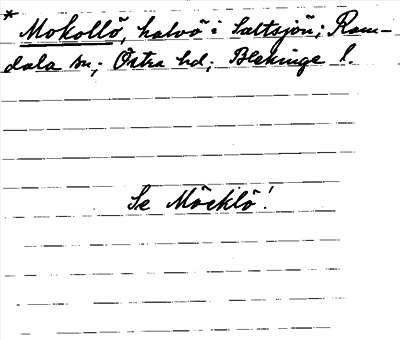 * Mokollö, halvö i Saltsjön; Ram-
dala sn; Östra hd; Blekinge l.
Se Möcklö!